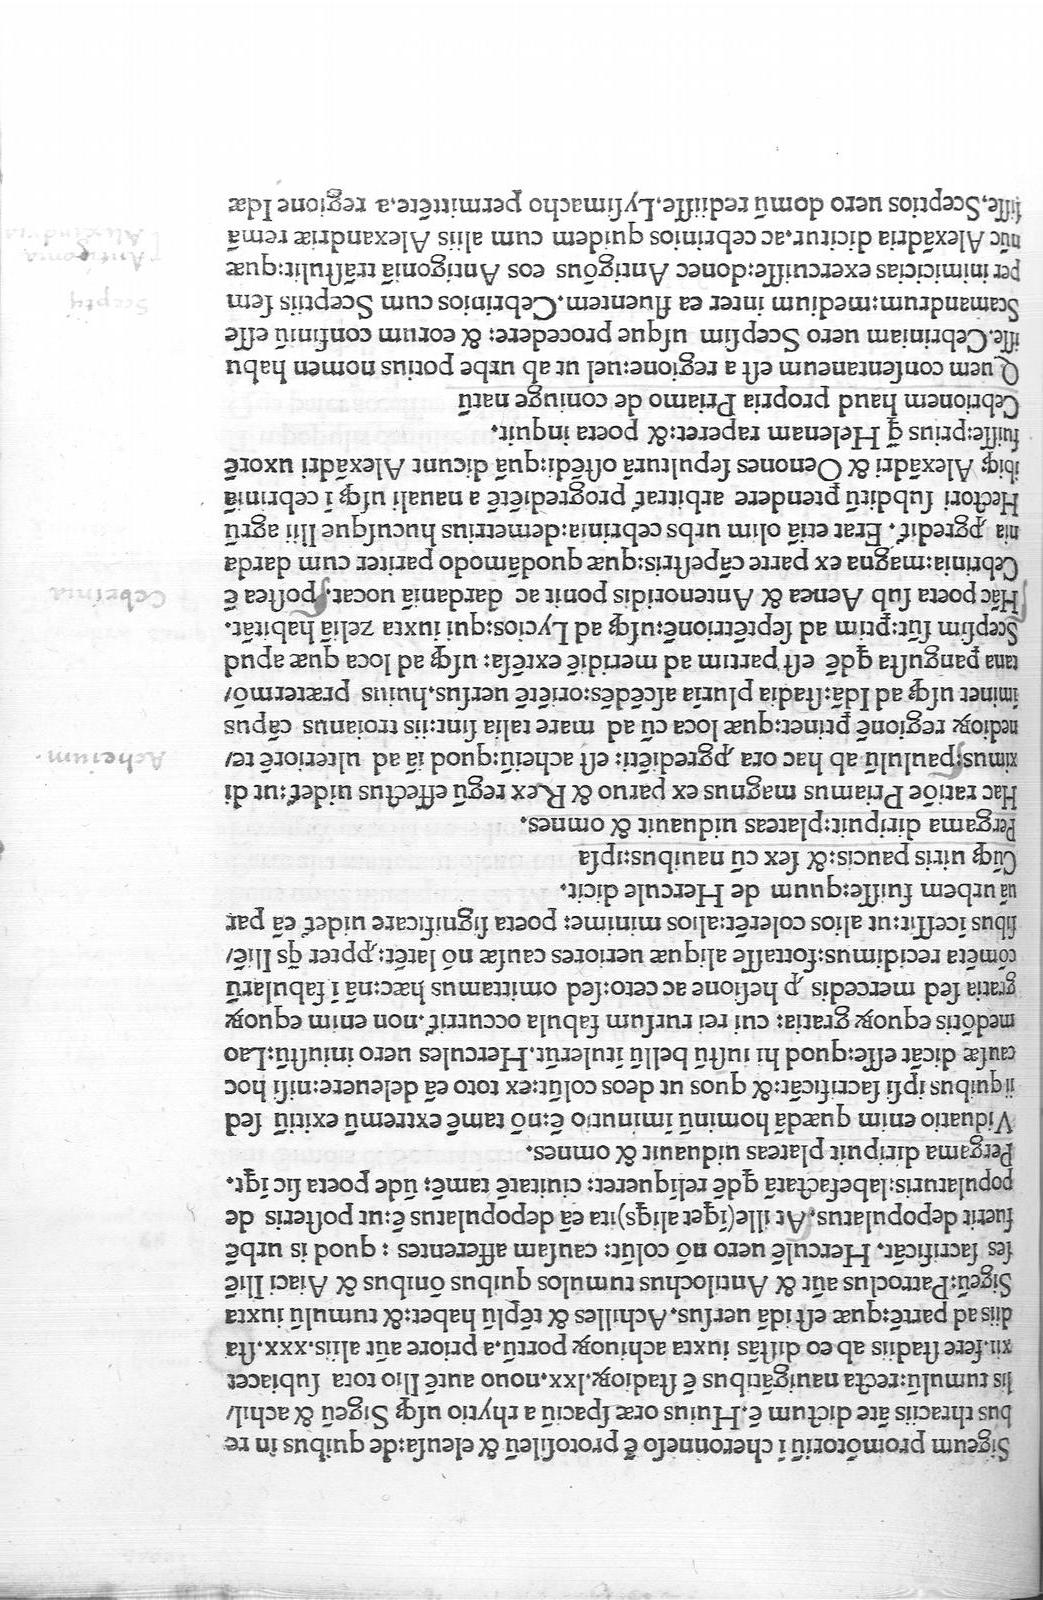 Sigeum promōtoriū ī cheronneſo ē protoſileū & eleuſa: de quibus in re
bus thraciis āte dictum ē. Huius oræ ſpaciū a rhytio uſꝙ Sigeū & achil/
lis tumulū: recta nauigātibus ē ſtadioꝝ. lxx. nouo autē Ilio tota ſubiacet
xii. fere ſtadiis ab eo diſtās iuxta achiuoꝝ portū. a priore aūt aliis. xxx. ſta
diis ad partē: quæ eſt idā uerſus. Achilles & tēplū habet: & tumulū iuxta
Sigeū: Patroclus aūt & Antilochus tumulos quibus ōnibus & Aiaci Iliē
ſes ſacrificāt. Herculē uero nō colūt: cauſam afferentes: quod is urbē
fuerit depopulatus. At ille (īget aliqs) ita eā depopulatus ē: ut poſteris de
populaturis: labefactatā qdē reliqueret: ciuitatē tamē: ūde poeta ſic īqt.
Pergama diripuit plateas uiduauit & omnes.
Viduatio enim quædā hominū īminutio ē: nō tamē extremū exitiū ſed
ii quibus ipſi ſacrificāt: & quos ut deos colūt: ex toto eā deleuere: niſi hoc
cauſæ dicāt eſſe: quod hi iuſtū bellū itulerūt. Hercules uero iniuſtū: Lao
medōtis equoꝝ gratia: cui rei rurſum fabula occurrit̄. non enim equoꝝ
gratia ſed mercedis ꝓ heſione ac ceto: ſed omittamus hæc: nā ī fabularū
cōmēta recidimus: fortaſſe aliquæ ueriores cauſæ nō latēt: ꝓpter qs Iliē/
ſibus īceſſit: ut alios colerēt: alios minime: poeta ſignificare uidet̄ eā par
uā urbem fuiſſe: quum de Hercule dicit.
Cūꝙ uiris paucis: & ſex cū nauibus: ipſa
Pergama diripuit: plateas uiduauit & omnes.
Hac ratiōe Priamus magnus ex paruo & Rex regū effectus uidet̄: ut di
ximus: paululū ab hac ora ꝓgrediēti: eſt acheiū: quod iā ad ulteriorē te/
nedioꝝ regionē ꝑtinet: quæ loca cū ad mare talia ſint: iis troianus cāpus
īminet uſꝙ ad Idā: ſtadia pluria aſcēdēs: oriētē uerſus. huius prætermō/
tana ꝑanguſta qdē eſt partim ad meridiē extēſa: uſꝙ ad loca quæ apud
Scepſim ſūt: ꝑtim ad ſeptētrionē: uſꝙ ad Lycios: qui iuxta zeliā habitāt.
Hāc poeta ſub Aenea & Antenoridis ponit ac dardaniā uocat. poſtea ē
Cebrinia: magna ex parte cāpeſtris: quæ quodāmodo pariter cum darda
nia ꝓgredit̄. Erat etiā olim urbs cebrinia: demetrius hucuſque Ilii agrū
Hectori ſubditū ꝑtendere arbitrat̄ progrediētē a nauali uſꝙ ī cebriniā
ibiꝙ Alexādri & Oenones ſepulturā oſtēdi: quā dicunt Alexādri uxorē
fuiſſe: prius q̄ Helenam raperet: & poeta inquit.
Cebrionem haud propria Priamo de coniuge natū
Quem conſentaneum eſt a regione: uel ut ab urbe potius nomen habu
iſſe. Cebriniam uero Scepſim uſque procedere: & eorum confiniū eſſe
Scamandrum: medium inter ea fluentem. Cebrinios cum Sceptiis ſem
per inimicicias exercuiſſe: donec Antigōus eos Antigoniā trāſtulit: quæ
nūc Alexādria dicitur. ac cebrinios quidem cum aliis Alexandriæ remā
ſiſſe, Sceptios uero domū rediiſſe. Lyſimacho permittēte. a regione Idæ
Acheium.
Cebrinia
Sceptij
Antigonia
Alexandria